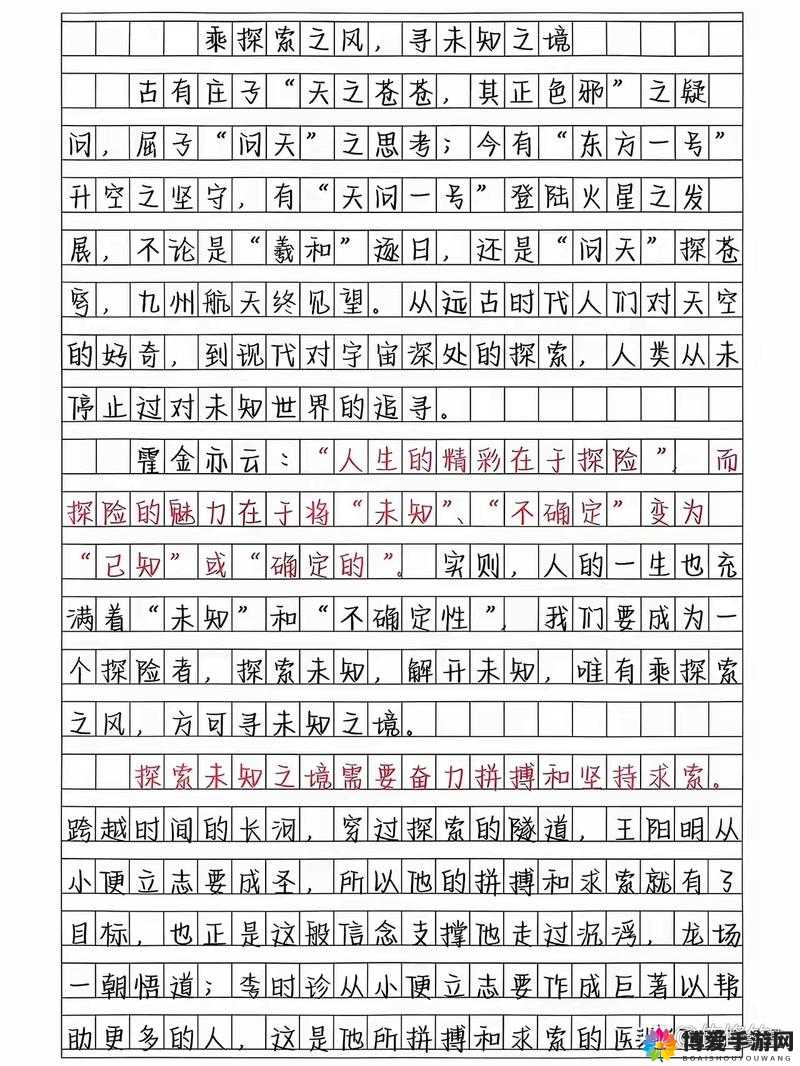 乘探索之风，寻未知之境
古有庄子“天之苍苍，其正色邪”之疑
问，屈子“问天”之思考；今有“东方一号”
升空之坚守，有“天问一号”登陆火星之发
展，不论是“羲和”逐日，还是“问天”探苍
穹，九州航天终见望。从远古时代人们对天空
的好奇，到现代对宇宙深处的探索，人类从未
停止过对未知世界的追寻。
霍金亦云：“人生的精彩在于探险”，而
探险的魅力在于将“未知”、“不确定”变为
“已知”或“确定的”。实则，人的一生也充
满着“未知”和“不确定性”，我们要成为一
个探险者，探索未知，解开未知，唯有乘探索
之风，方可寻未知之境。
探索未知之境需要奋力拼搏和坚持求索。
跨越时间的长河，穿过探索的隧道，王阳明从
小便立志要成圣，所以他的拼搏和求索就有了
目标，也正是这般信念支撑他走过沉浮，龙场
一朝悟道；李时诊从小便立志要作成巨著以帮
助更多的人，这是他所拼搏和求索的医
博爱手游网
BOAISHOUYOUWANG